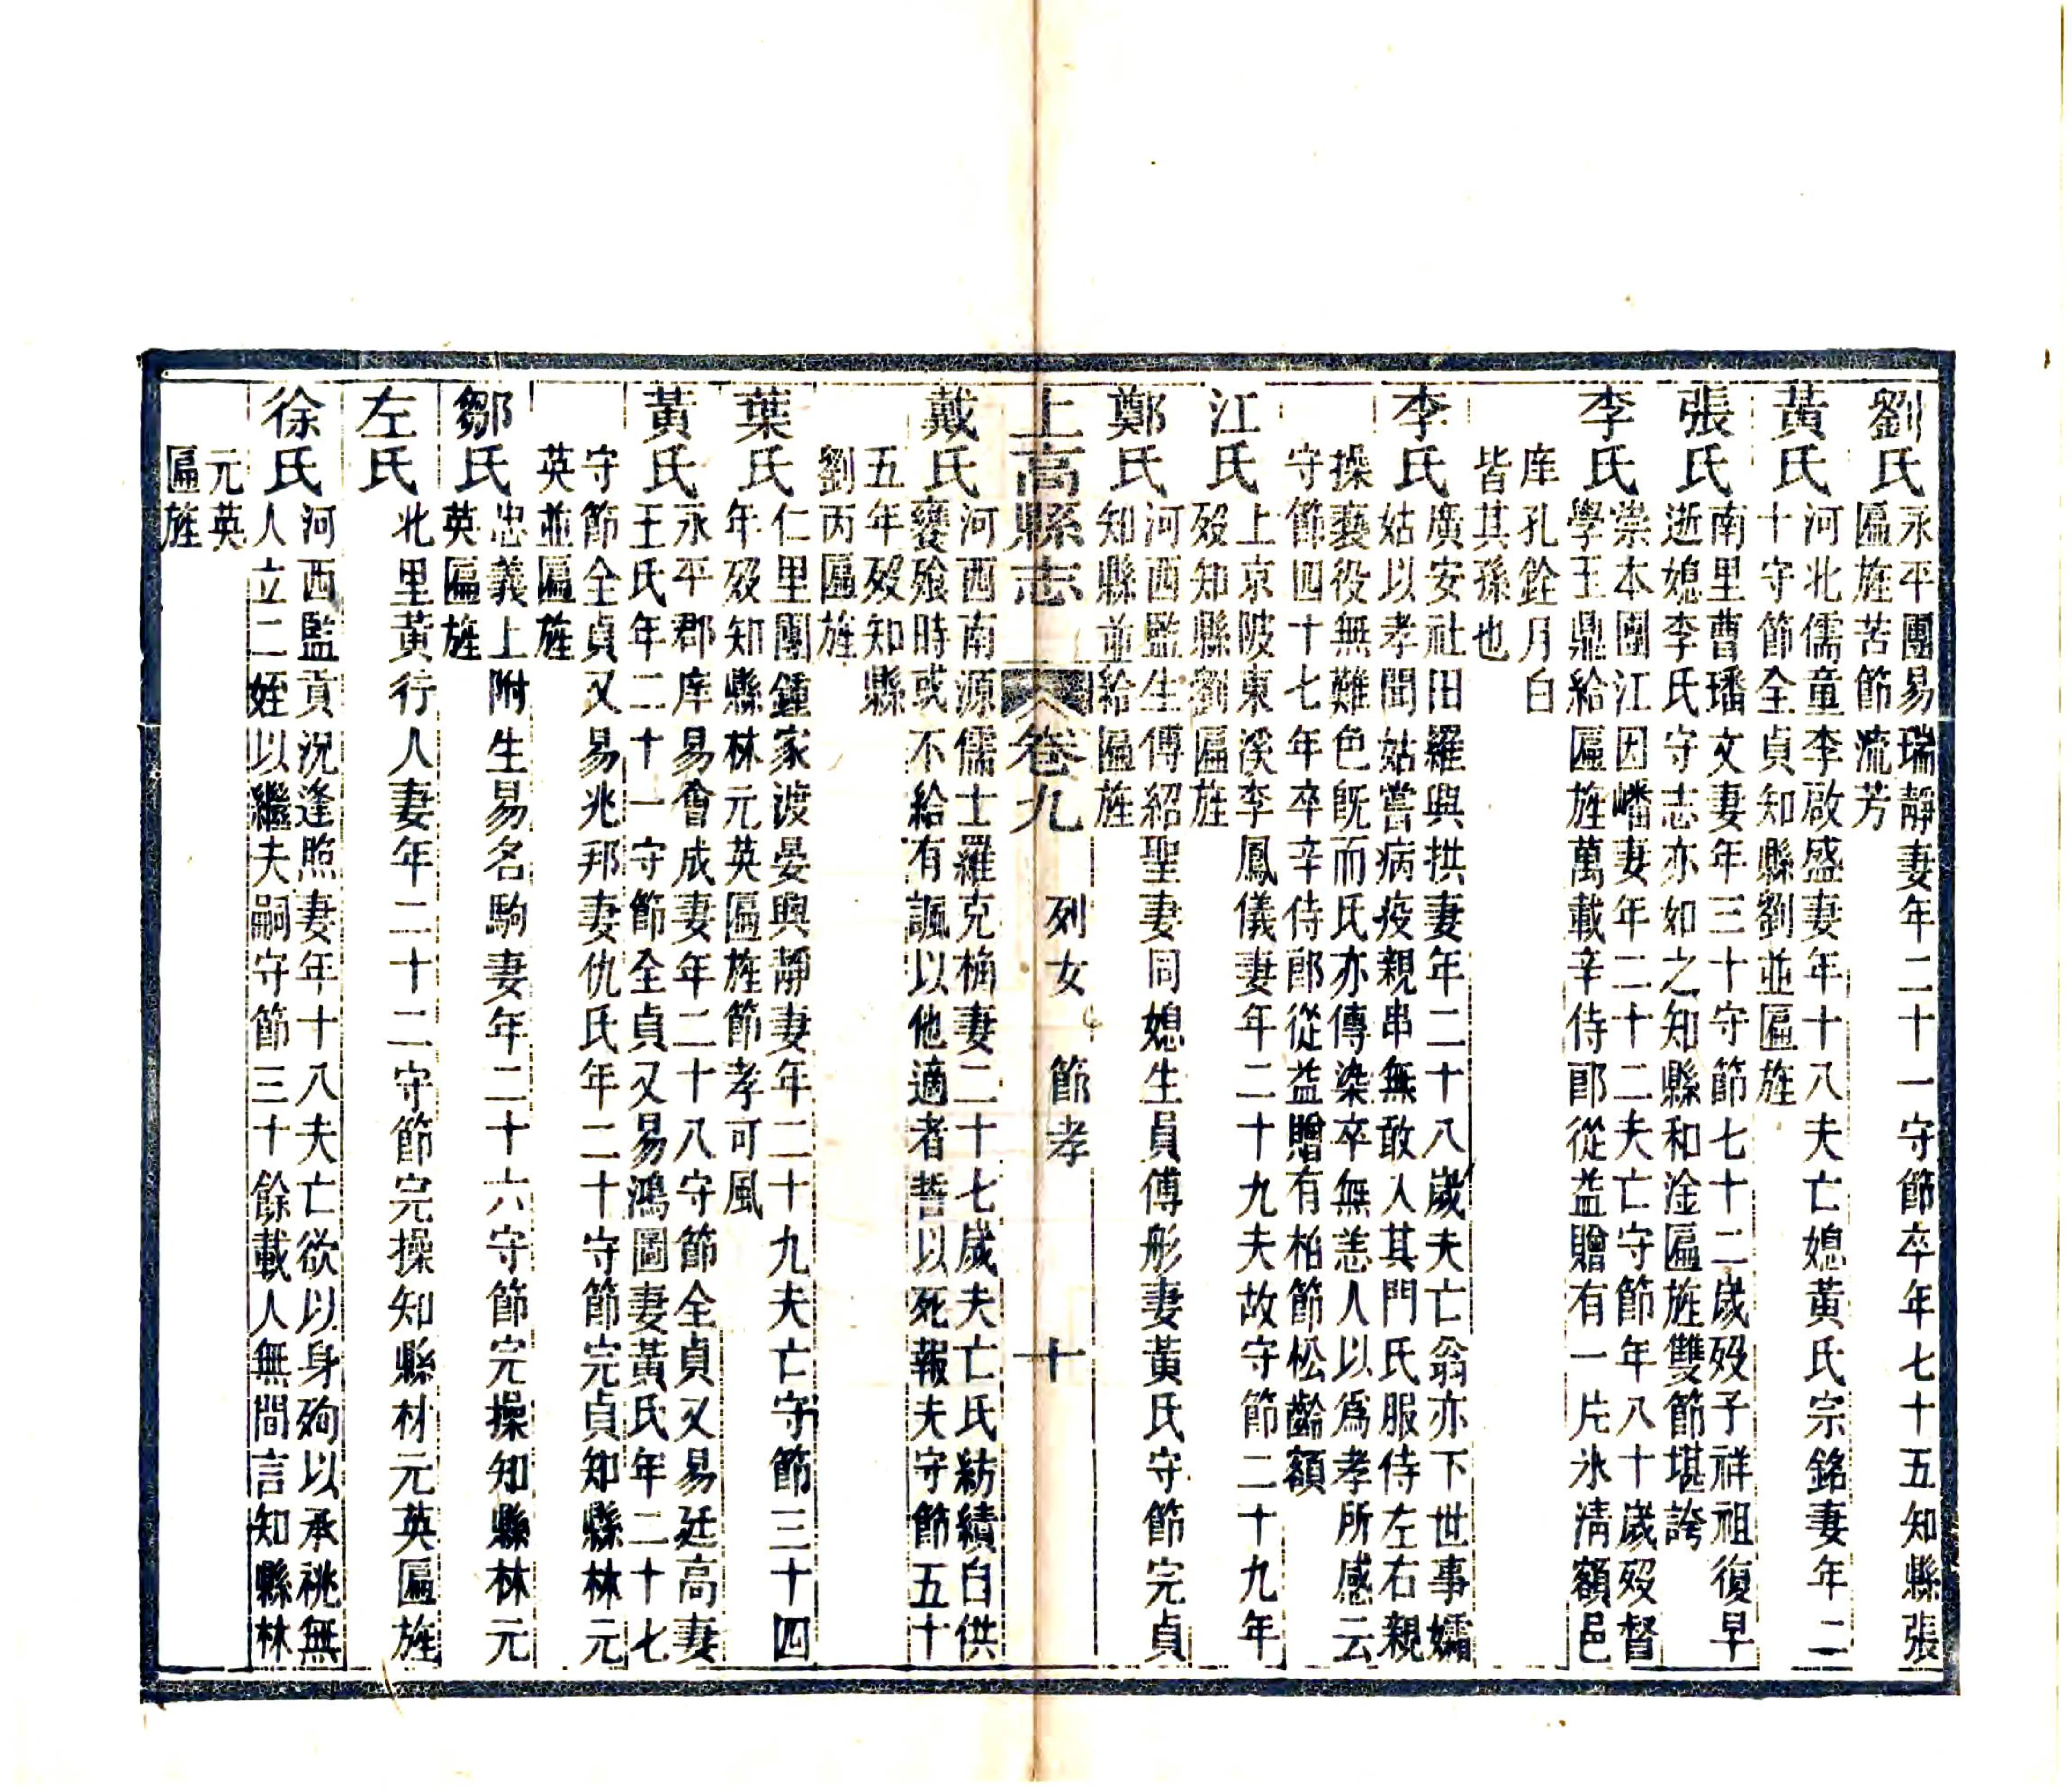 劉氏永平團易瑞靜妻年二十一守節卒年七十五知縣張
匾旌苦節流芳
黃氏河北儒童李啟盛妻年十八夫亡媳黃氏宗銘妻年二
十守節全貞知縣劉並匾旌
張氏南里曹璠文妻年三十守節七十二歲歿子祥祖復早
逝媳李氏守志亦如之知縣和淦匾旌雙節堪誇
李氏崇本團江因嶓妻年二十二夫亡守節年八十歲歿督
學王鼎給匾旌萬載辛侍郎從益贈有一片氷淸額邑
庠孔銓月白
皆其孫也
李氏廣安社田羅與拱妻年二十八歲夫亡翁亦下世事孀
姑以孝聞姑嘗病疫親串無敢入其門氏服侍左右親
操䙝役無難色旣而氏亦傳染卒無恙人以爲孝所感云
守節四十七年卒辛侍郎從益贈有柏節松齡額
江氏上京陂東溪李鳳儀妻年二十九夫故守節二十九年
歿知縣劉匾旌
鄭氏河西監生傅紹聖妻同媳生員傅彤妻黃氏守節完貞
知縣並給匾旌
上高縣志 卷九 列女 節孝 十
戴氏河西南源儒士羅克楠妻二十七歲夫亡氏紡績自供
饔飱時或不給有諷以他適者誓以死報夫守節五十
五年歿知縣
劉丙匾旌
葉氏仁里團鍾家渡晏與靜妻年二十九夫亡守節三十四
年歿知縣林元英匾旌節孝可風
黃氏永平郡庠易會成妻年二十八守節全貞又易廷高妻
王氏年二十一守節全貞又易鴻圖妻黃氏年二十七
守節全貞又易兆邦妻仇氏年二十守節完貞知縣林元
英並匾旌
鄒氏忠義上附生易名駒妻年二十六守節完操知縣林元
英匾旌
左氏北里黃行人妻年二十二守節完操知縣材元英匾旌
徐氏河西監貢況逢照妻年十八夫亡欲以身殉以承祧無
人立二姪以繼夫嗣守節三十餘載人無間言知縣林
元英
匾旌